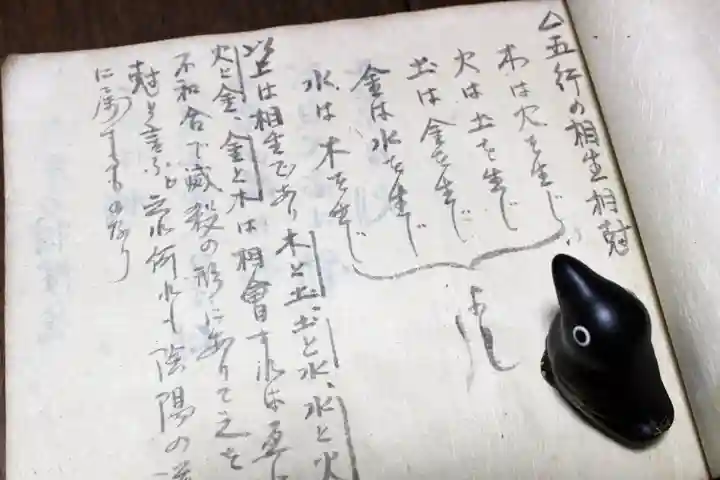 △五行の相生相尅
木は火を生じ
火は土を生じ
土は金を生じ
金は水を生じ
水は木を生じ
よし
以上は相生であり木と土、土と水、水と火
火と金、金と木は相會すれば
不和合で滅殺の形にありて之を
尅と言ふ 何れも陰陽の
に属すものなり